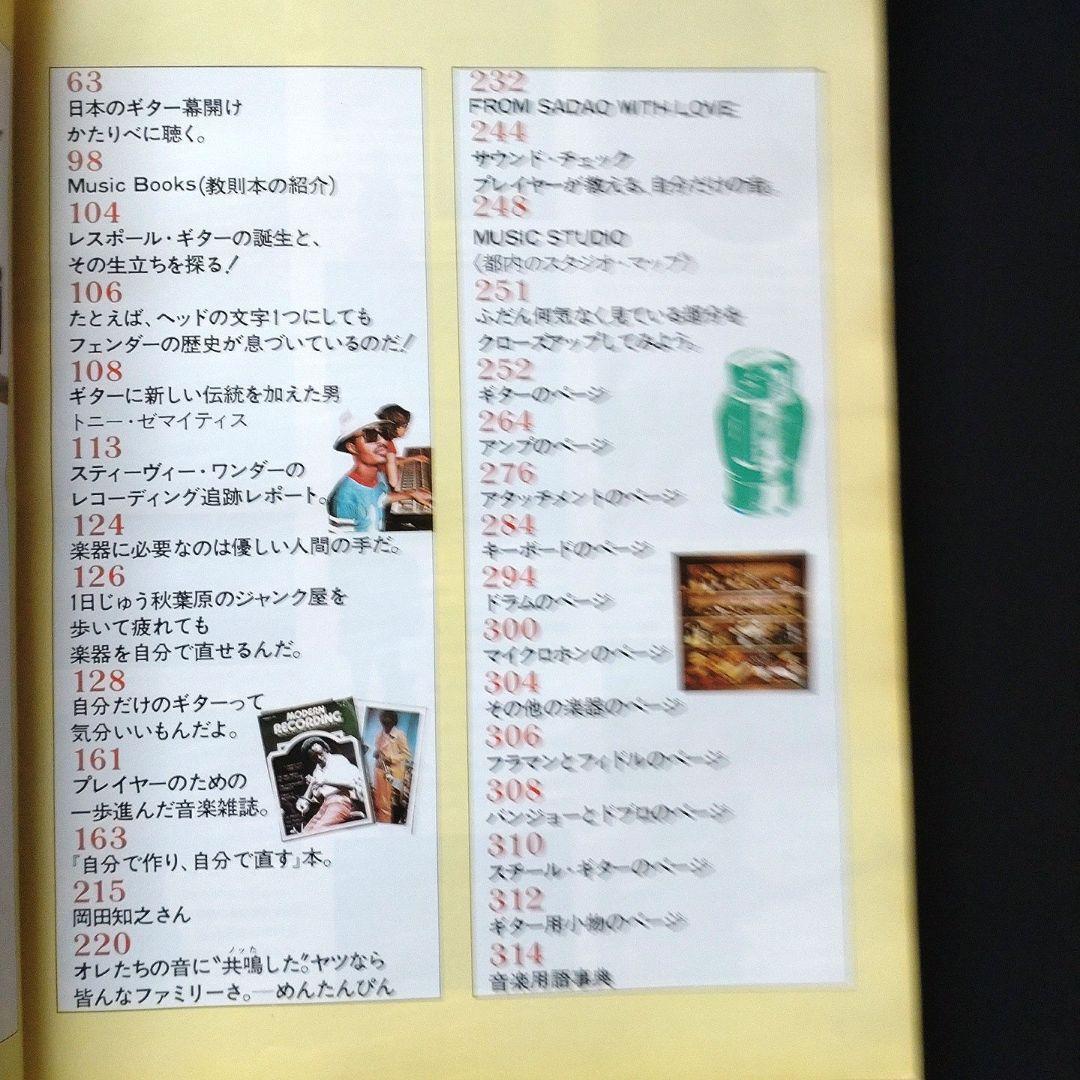 63
日本のギター幕開け
かたりべに聴く。
98
Music Books(教則本の紹介)
104
レスポール・ギターの誕生と、
その生立ちを探る!
106
たとえば、ヘッドの文字1つにしても
フェンダーの歴史が息づいているのだ!
108
ギターに新しい伝統を加えた男
トニー・ゼマイティス
113
スティーヴィー・ワンダーの
レコーディング追跡レポート。
124
楽器に必要なのは優しい人間の手だ。
126
1日じゅう秋葉原のジャンク屋を
歩いて疲れても
楽器を自分で直せるんだ。
128
自分だけのギターって
気分いいもんだよ。
MODERN
RECORDING
161
プレイヤーのための
一歩進んだ音楽雑誌。
163
『自分で作り、自分で直す』本。
215
岡田知之さん
220
オレたちの音に“共鳴した”。ヤツなら
ノッた
皆んなファミリーさ。―めんたんぴん
232
FROM SADAO WITH LOVE
244
サウンド・チェック
プレイヤーが教える、自分だけの音。
248
MUSIC STUDIO
〈都内のスタジオ・マップ〉
251
ふだん何気なく見ている部分を
クローズアップしてみよう。
252
ギターのページ
264
アンプのページ
276
アタッチメントのページ
284
キーボードのページ
294
ドラムのページ
300
マイクロホンのページ
304
その他の楽器のページ
306
フラマンとフィドルのページ
308
バンジョーとドブロのページ
310
スチール・ギターのページ
312
ギター用小物のページ
314
音楽用語事典